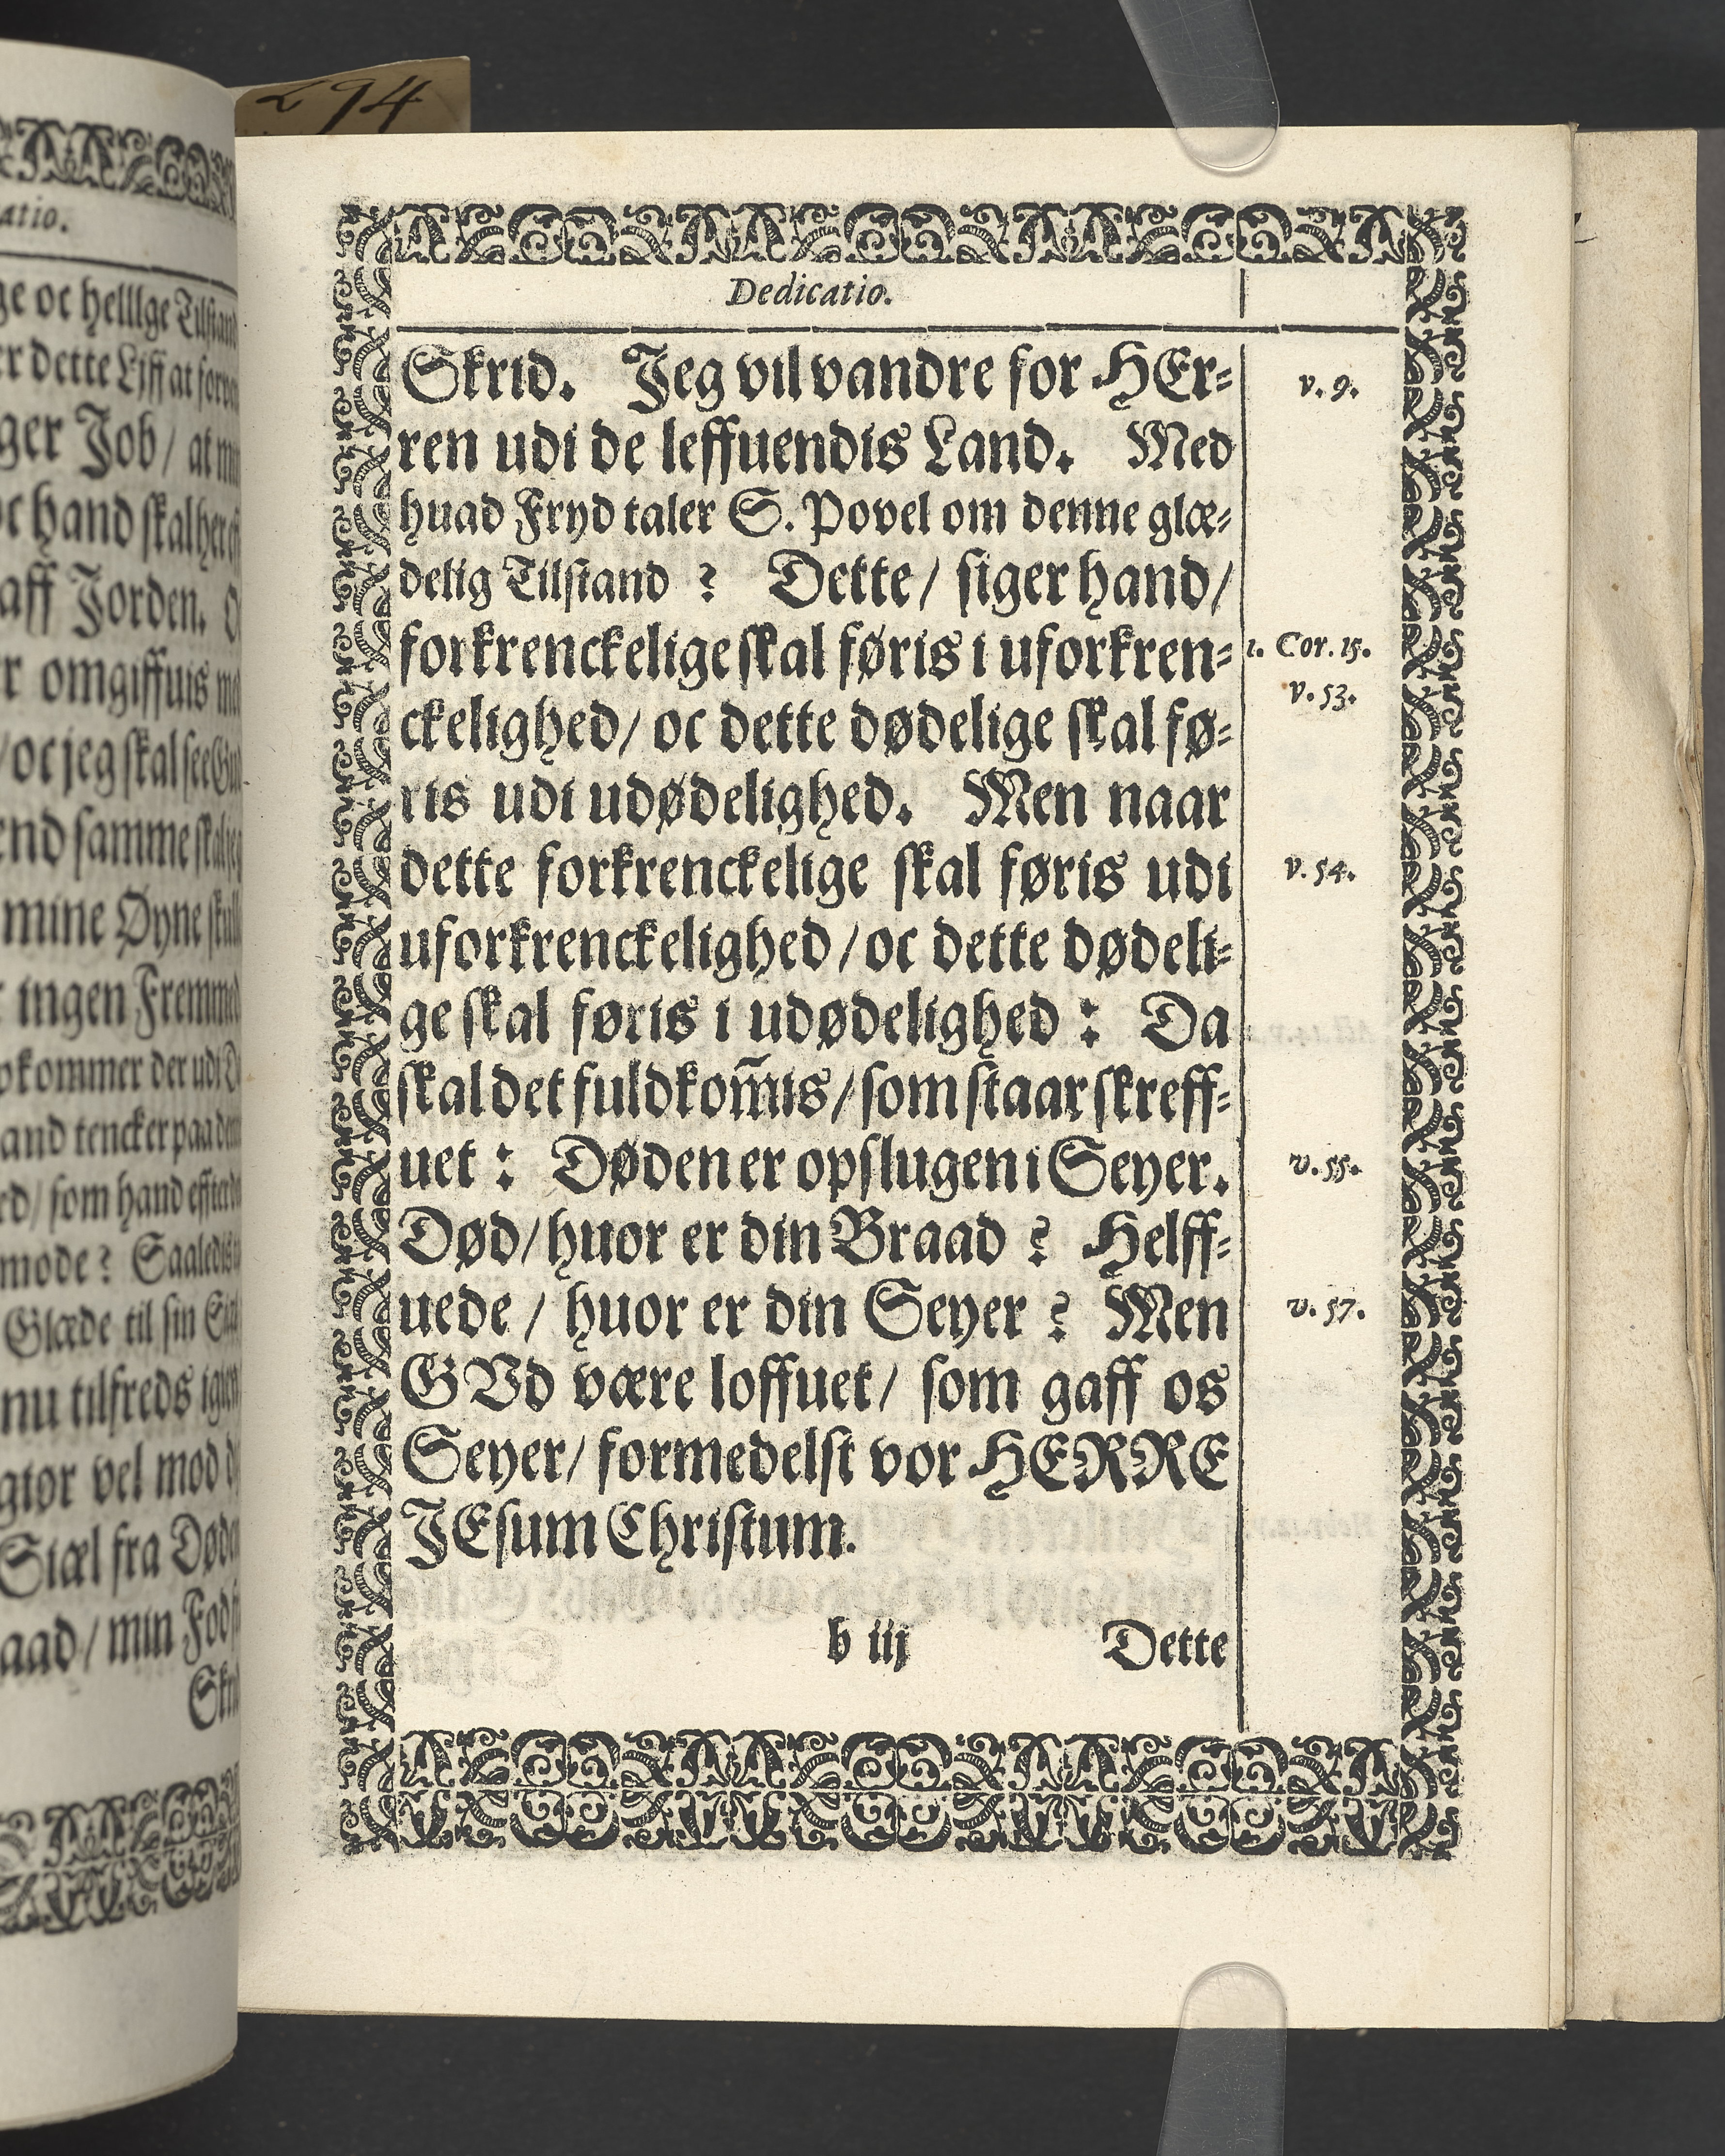 294
atio.
ge oc helllge Tilstand
er dette Liff at forva
ger Job / at min
oc hand skal her eff
aff Jorden. O
r omgiffuis med
/ oc jeg skal see Gud
end samme skal jeg
mine Øyne skulle
ingen Fremmed
kommer der udi
and tencker paa den
ed / som hand effter
mode ? Saaledis
Glæde til sin
nu tilfreds igien
giør vel mod
Siæl fra Døden
aad / min Fod
Skrid
Dedicatio.
Skrid. Jeg vil vandre for HEr=
v. 9.
ren udi de leffuendis Land. Med
huad Fryd taler S. Povel om denne glæ=
delig Tilstand ? Dette / siger hand /
forkrenckelige skal føris i uforkren=
1. Cor. 15.
v. 53.
ckelighed / oc dette dødelige skal fø=
ris udi udødelighed. Men naar
dette forkrenckelige skal føris udi
v. 54.
uforkrenckelighed / oc dette dødeli=
ge skal føris i udødelighed : Da
skal det fuldkom̃is / som staar skreff=
uet : Døden er opslugen i Seyer.
v. 55.
Død / huor er din Braad ? Helff=
uede / huor er din Seyer ? Men
v. 57.
GVd være loffuet / som gaff os
Seyer / formedelst vor HERRE
JEsum Christum.
b iij Dette